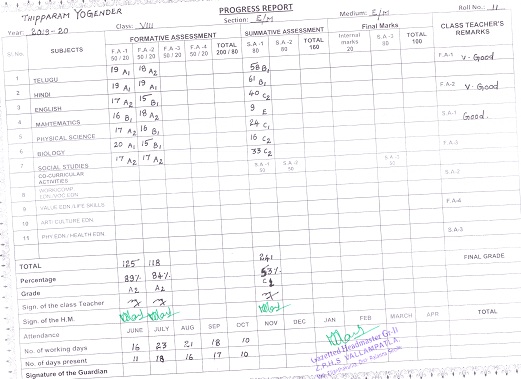 THIPPARAM YOGENDER PROGRESS REPORT Roll No.: 11
Year: 2019-20 Class: VIII Section: E/M Medium: E/M
Sl.No. SUBJECTS FORMATIVE ASSESSMENT SUMMATIVE ASSESSMENT Final Marks CLASS TEACHER'S REMARKS
F.A-1 50/20 F.A-2 50/20 F.A-3 50/20 F.A-4 50/20 TOTAL 200/80 S.A-1 80 S.A-2 80 TOTAL 160 Internal marks 20 S.A-3 80 TOTAL 100
1 TELUGU 19 A1 18 A2 58 B1 F.A-1 V. Good
2 HINDI 19 A1 19 A1 61 B1 F.A-2 V. Good
3 ENGLISH 17 A2 15 B1 40 C2
4 MAHTEMATICS 16 B1 18 A2 9 E S.A-1 Good
5 PHYSICAL SCIENCE 17 A2 16 B1 24 C1
6 BIOLOGY 20 A1 15 B1 16 C2 F.A-3
7 SOCIAL STUDIES 17 A2 17 A2 33 C2
CO-CURRICULAR ACTIVITIES S.A-1 50 S.A-2 50 S.A-3 50 S.A-2
8 WORK/COMP EDN./VOC EDN
9 VALUE EDN./LIFE SKILLS F.A-4
10 ART/ CULTURE EDN
11 PHY EDN / HEALTH EDN S.A-3
TOTAL 125 118 241 FINAL GRADE
Percentage 89% 84% 53%
Grade A2 A2
Sign. of the class Teacher
Sign. of the H.M.
Attendance JUNE JULY AUG SEP OCT NOV DEC JAN FEB MARCH APR TOTAL
No. of working days 16 23 21 18 10
No. of days present 11 18 16 17 10
Signature of the Guardian
Gazetted Headmaster Gr-II
Z.P.H.S. VALLAMPATLA